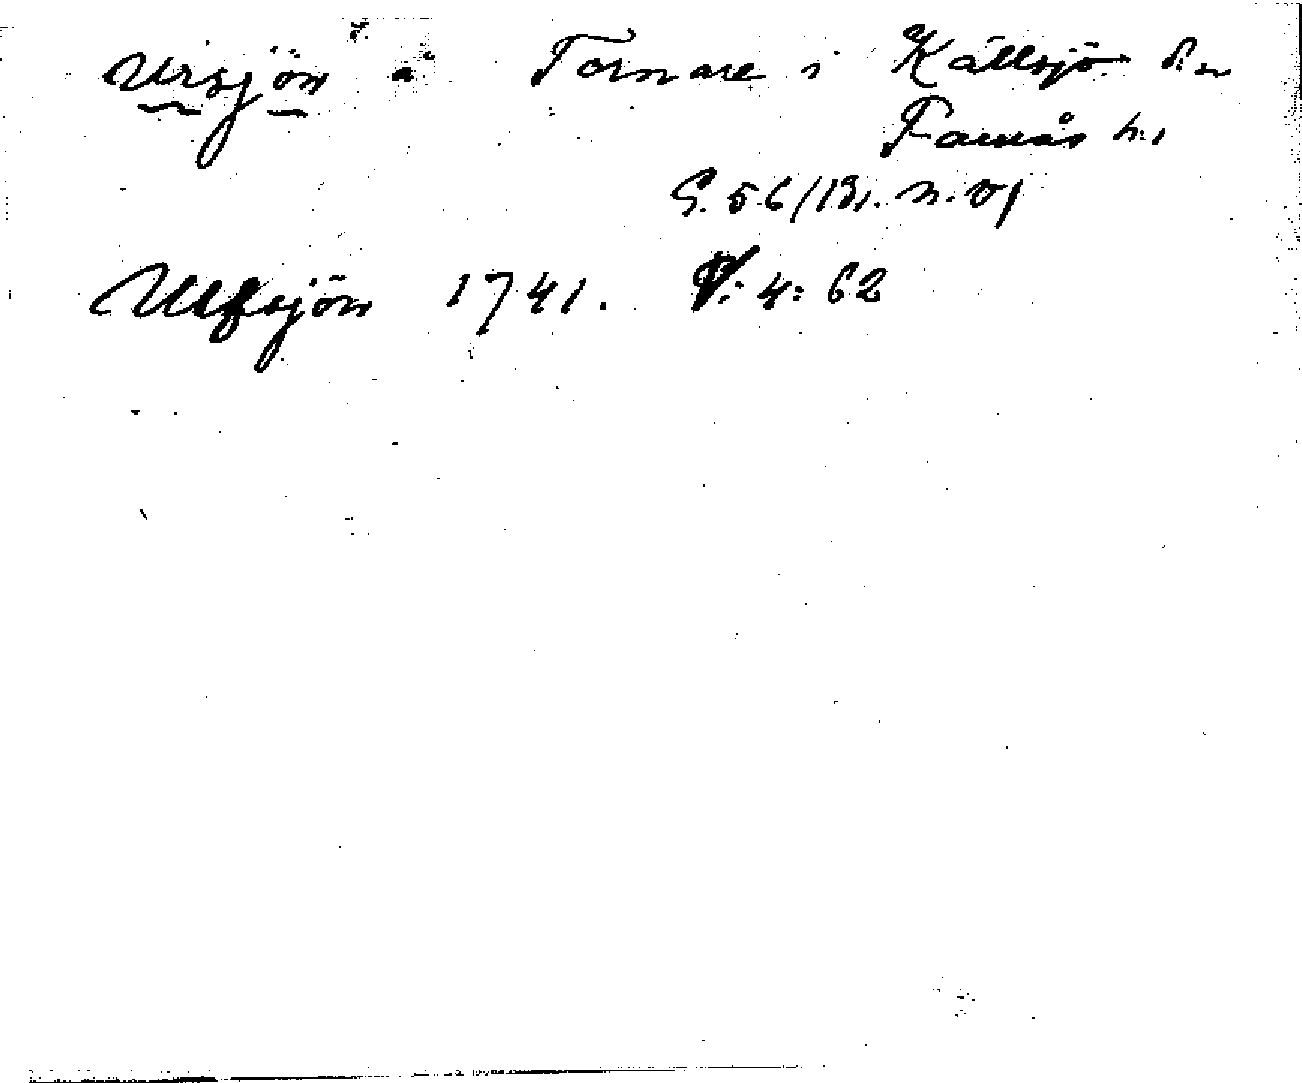 Ursjön å Tornare i Källsjö s:n
Faurås h:d
G. 56/131. n. v/
Ulfsjön 1741. V: 4: 62